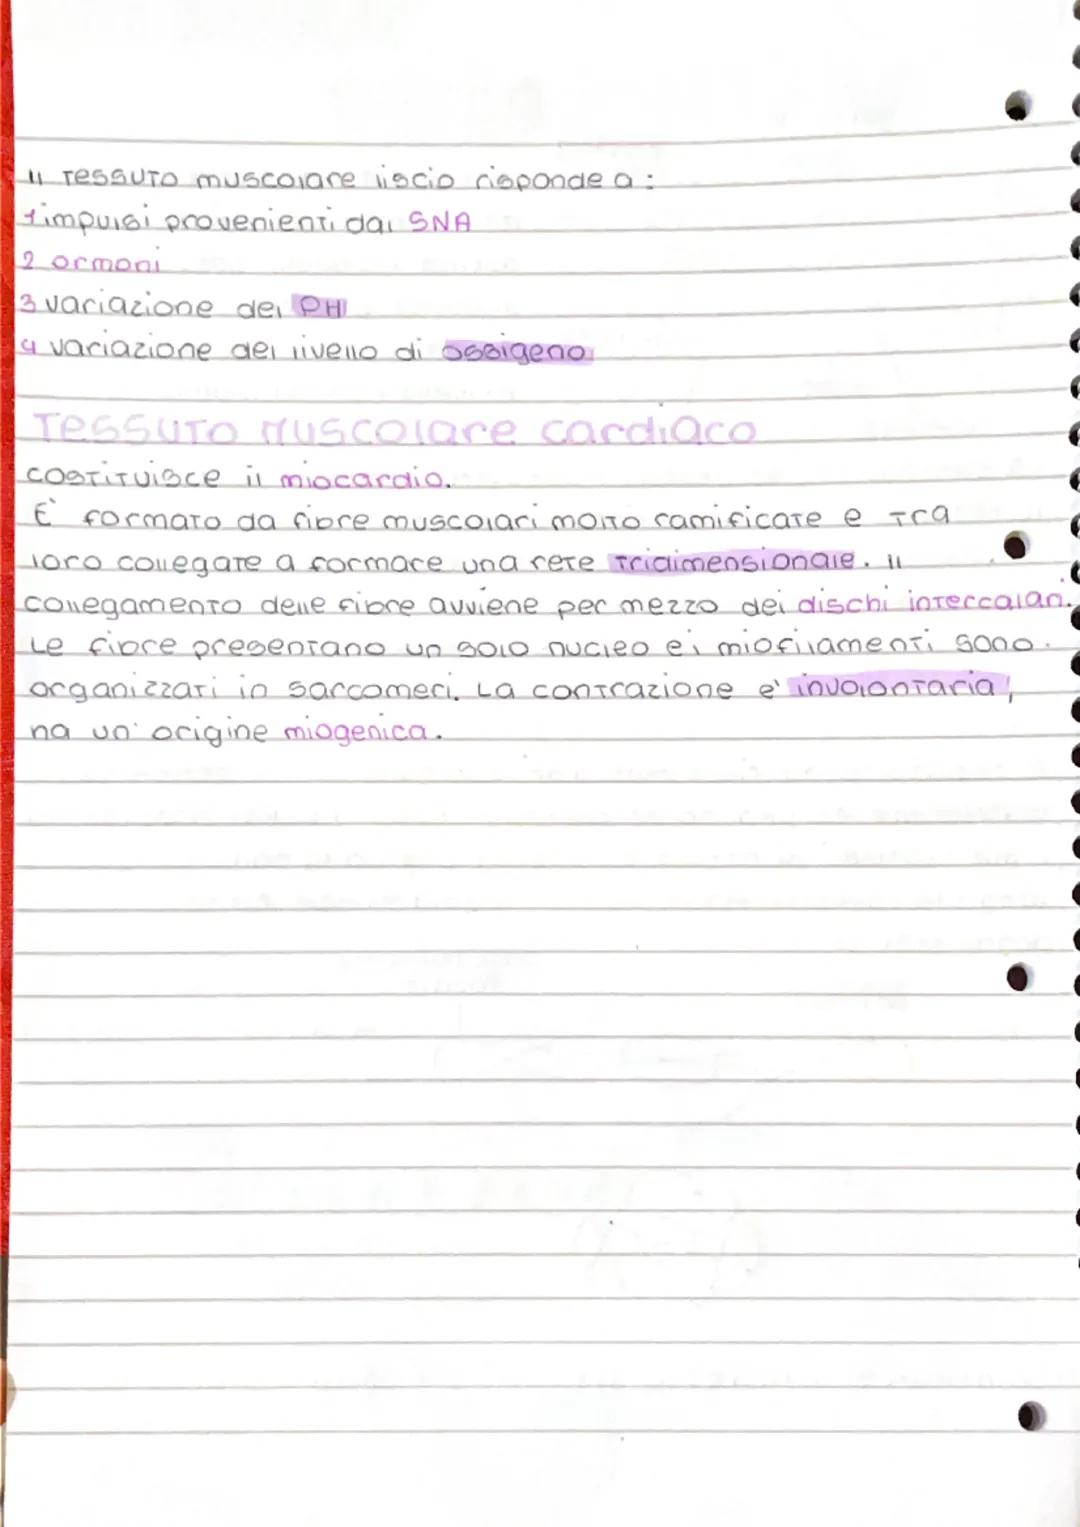 Il tessuto muscolare liscio risponde a:
1 impulsi provenienti dal SNA
2 ormoni
3 variazione del PH
4 variazione del livello di ossigeno
Tessuto Muscolare cardiaco
costituisce il miocardio.
È formato da fibre muscolari molto ramificate e tra
loro collegate a formare una rete tridimensionale. Il
collegamento delle fibre avviene per mezzo dei dischi intercalari.
Le fibre presentano un solo nucleo e i miofilamenti sono
organizzati in sarcomeri. La contrazione e' involontaria,
ha un' origine miogenica.